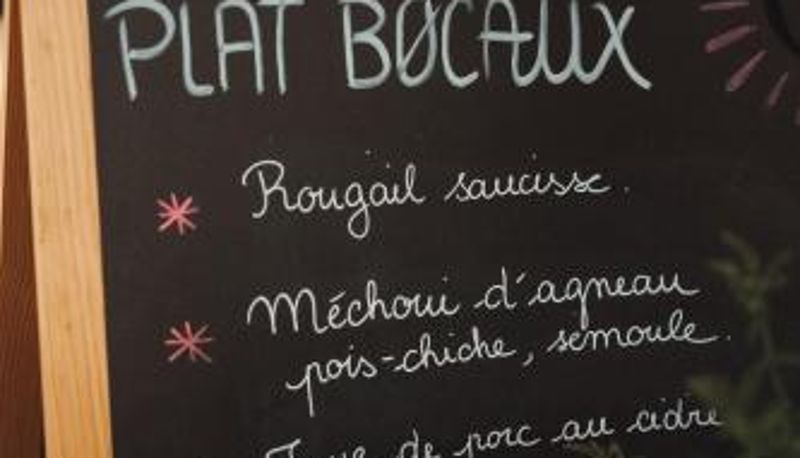 PLAT BOCAUX
Rougail saucisse.
Méchoui d'agneau
pois-chiche, semoule.
de porc au cidre